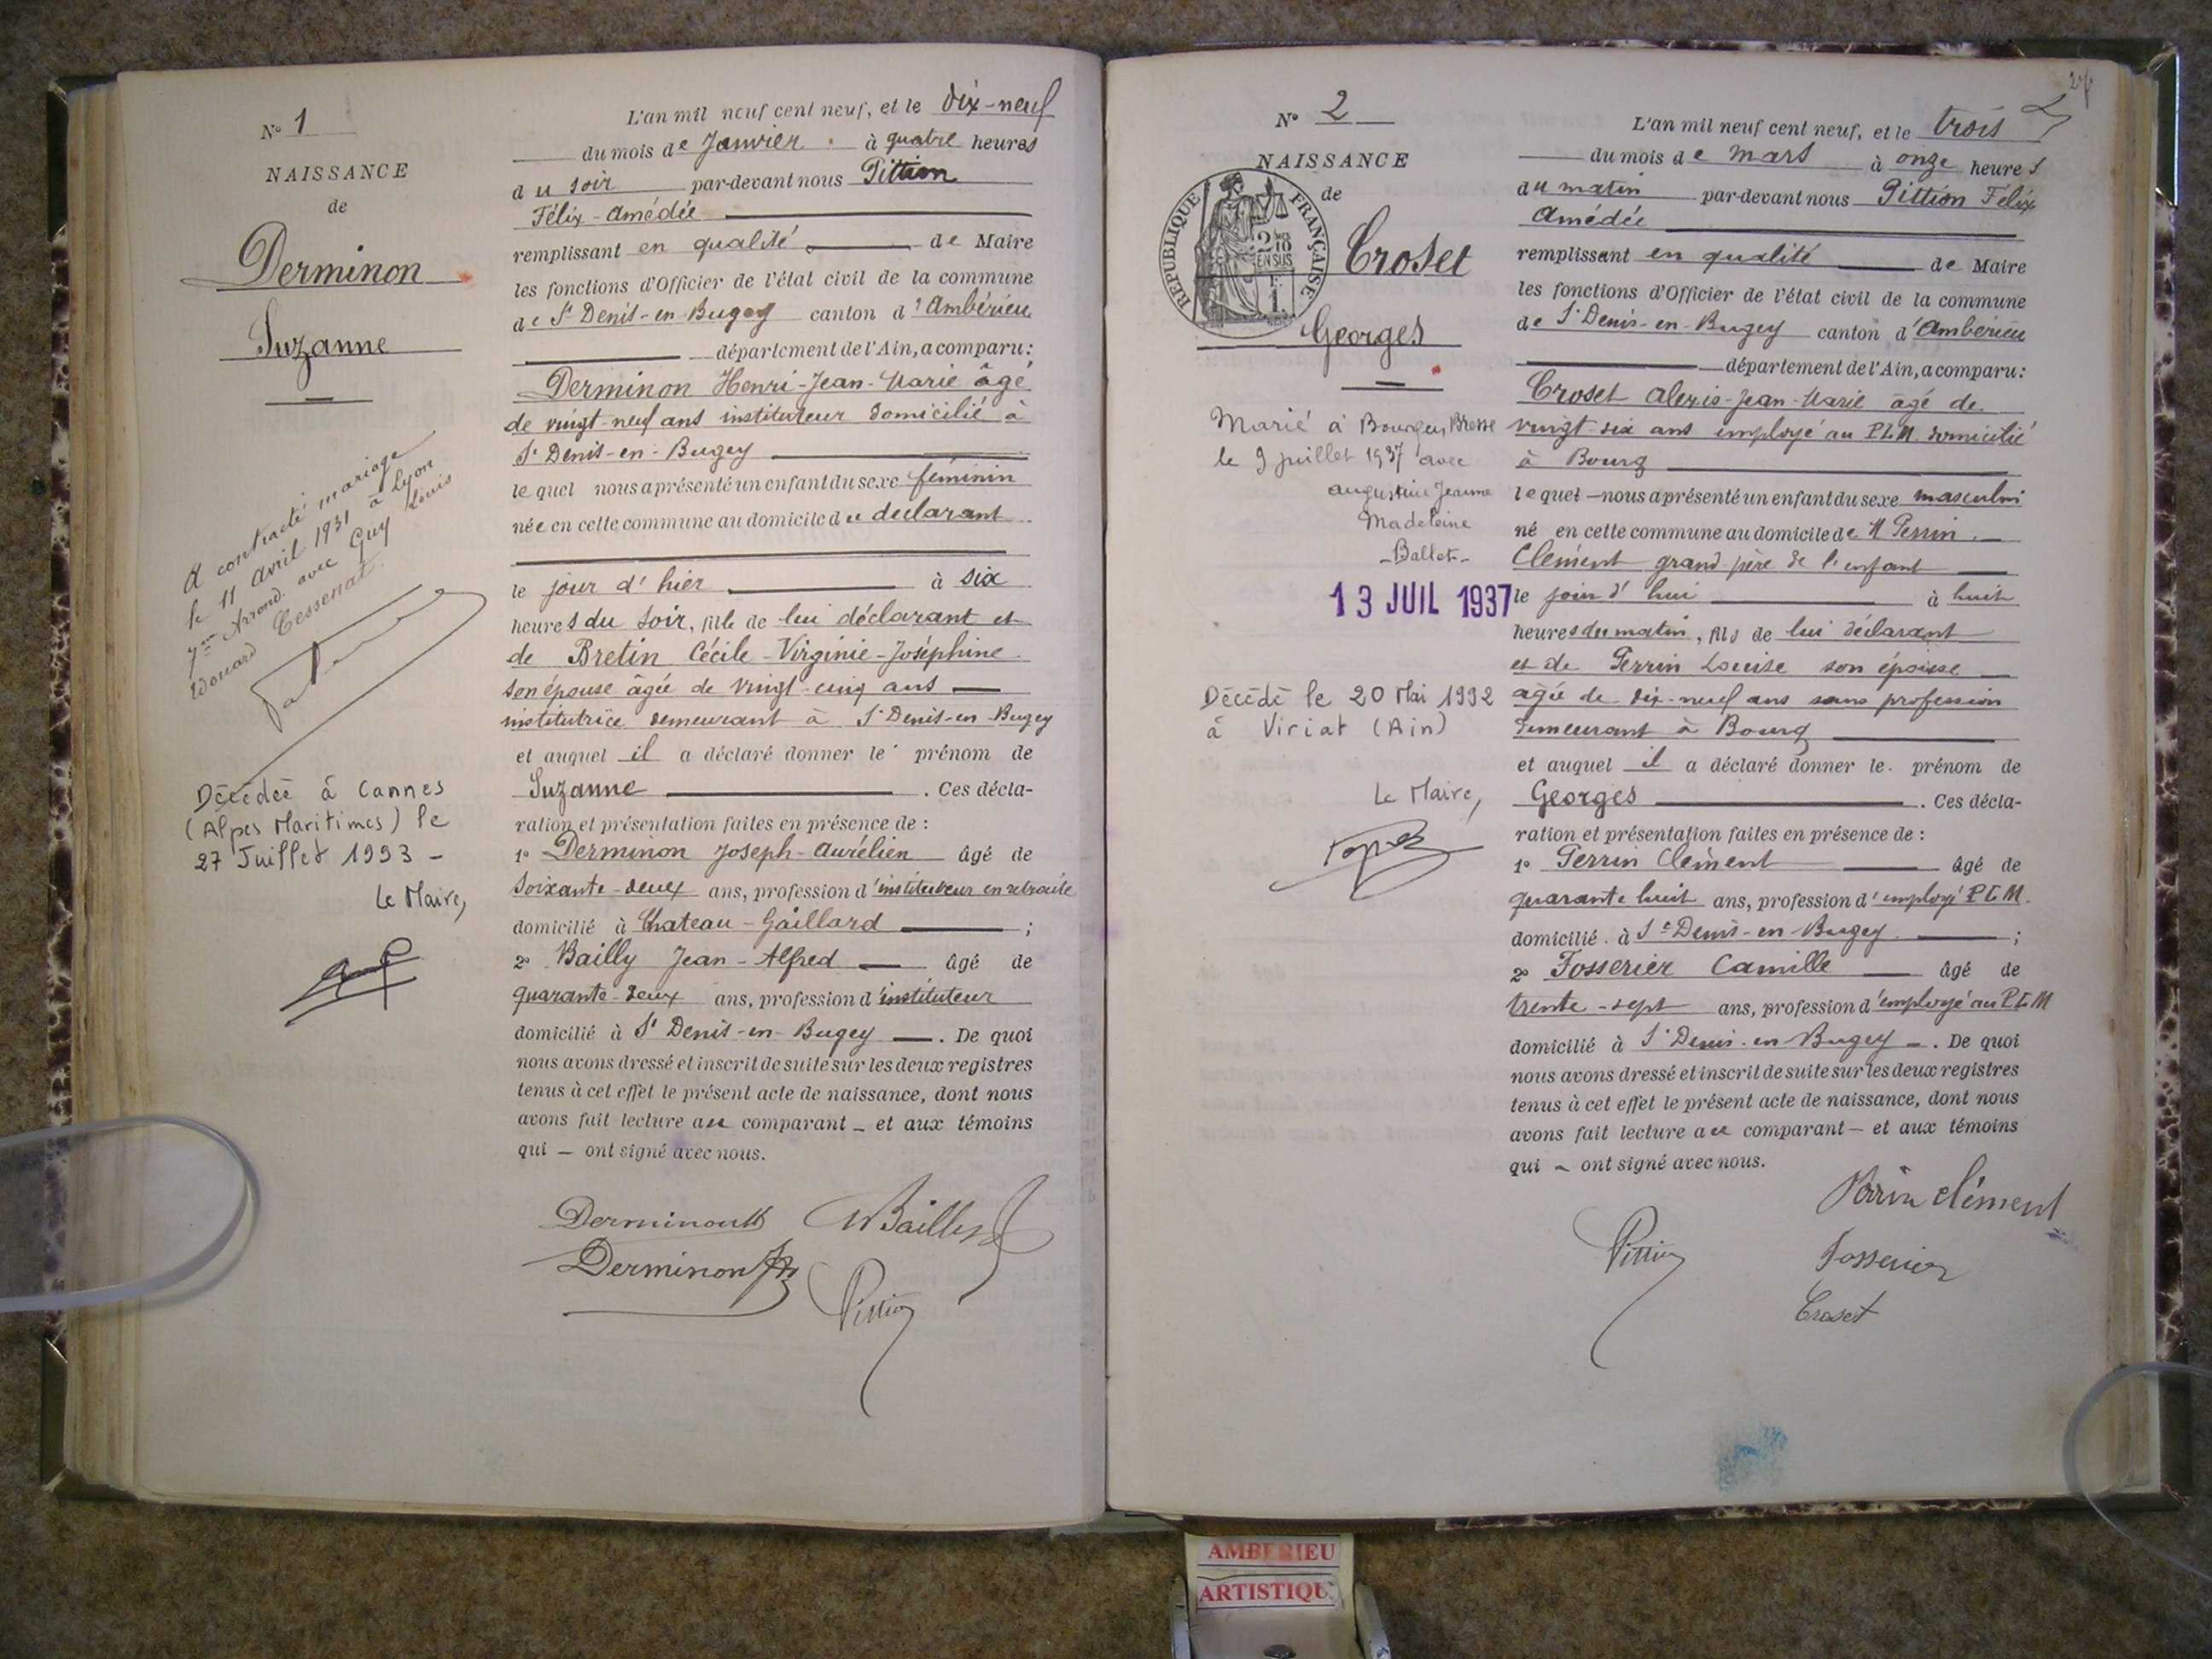 N° 1
NAISSANCE
de
Derminon
Suzanne
A contracté mariage
le 11 avril 1931 à Lyon
7me Arrond. avec Guy Louis
Edouard Tessenat.
Décédée à Cannes
(Alpes Maritimes) le
27 Juillet 1993 -
Le Maire,
L'an mil neuf cent neuf, et le dix-neuf
du mois de Janvier à quatre heures
du soir par-devant nous Pittion
Félix-Amédée
remplissant en qualité de Maire
les fonctions d'Officier de l'état civil de la commune
de St Denis-en-Bugey canton d'Ambérieu
département de l'Ain, a comparu :
Derminon Henri-Jean-Marie âgé
de vingt-neuf ans instituteur domicilié à
St Denis-en-Bugey
lequel nous a présenté un enfant du sexe féminin
née en cette commune au domicile du déclarant
le jour d'hier à six
heures du soir, fille de lui déclarant et
de Bretin Cécile-Virginie-Joséphine
son épouse âgée de vingt-cinq ans
institutrice demeurant à St Denis-en-Bugey
et auquel il a déclaré donner le prénom de
Suzanne . Ces décla-
ration et présentation faites en présence de :
1° Derminon Joseph-Aurélien âgé de
soixante-deux ans, profession d'instituteur en retraite
domicilié à Chateau-Gaillard ;
2° Bailly Jean-Alfred âgé de
quarante-deux ans, profession d'instituteur
domicilié à St Denis-en-Bugey . De quoi
nous avons dressé et inscrit de suite sur les deux registres
tenus à cet effet le présent acte de naissance, dont nous
avons fait lecture au comparant - et aux témoins
qui - ont signé avec nous.
Derminon Bailly
Derminon
Pittion
27
N° 2
NAISSANCE
de
RÉPUBLIQUE FRANÇAISE
2/10
EN SUS
Croset
Georges
Marié à Bourg en Bresse
le 9 juillet 1937 avec
Augustine Jeanne
Madeleine
-Ballet-
13 JUIL 1937
Décédé le 20 Mai 1992
à Viriat (Ain)
Le Maire,
L'an mil neuf cent neuf, et le trois
du mois de mars à onze heures
du matin par-devant nous Pittion Félix
Amédée
remplissant en qualité de Maire
les fonctions d'Officier de l'état civil de la commune
de St Denis-en-Bugey canton d'Ambérieu
département de l'Ain, a comparu :
Croset Alexis-Jean-Marie âgé de
vingt-six ans employé au P.L.M. domicilié
à Bourg
lequel - nous a présenté un enfant du sexe masculin
né en cette commune au domicile de M Perrin
Clément grand-père de l'enfant
le jour d'hui à huit
heures du matin, fils de lui déclarant
et de Perrin Louise son épouse
âgée de dix-neuf ans sans profession
demeurant à Bourg
et auquel il a déclaré donner le prénom de
Georges . Ces décla-
ration et présentation faites en présence de :
1° Perrin Clément âgé de
quarante huit ans, profession d'employé P.L.M.
domicilié à St Denis-en-Bugey ;
2° Fosserier Camille âgé de
trente-sept ans, profession d'employé au P.L.M
domicilié à St Denis-en-Bugey - . De quoi
nous avons dressé et inscrit de suite sur les deux registres
tenus à cet effet le présent acte de naissance, dont nous
avons fait lecture au comparant - et aux témoins
qui - ont signé avec nous.
Perrin Clément
Pittion
Fosserier
Croset
AMBERIEU
ARTISTIQU